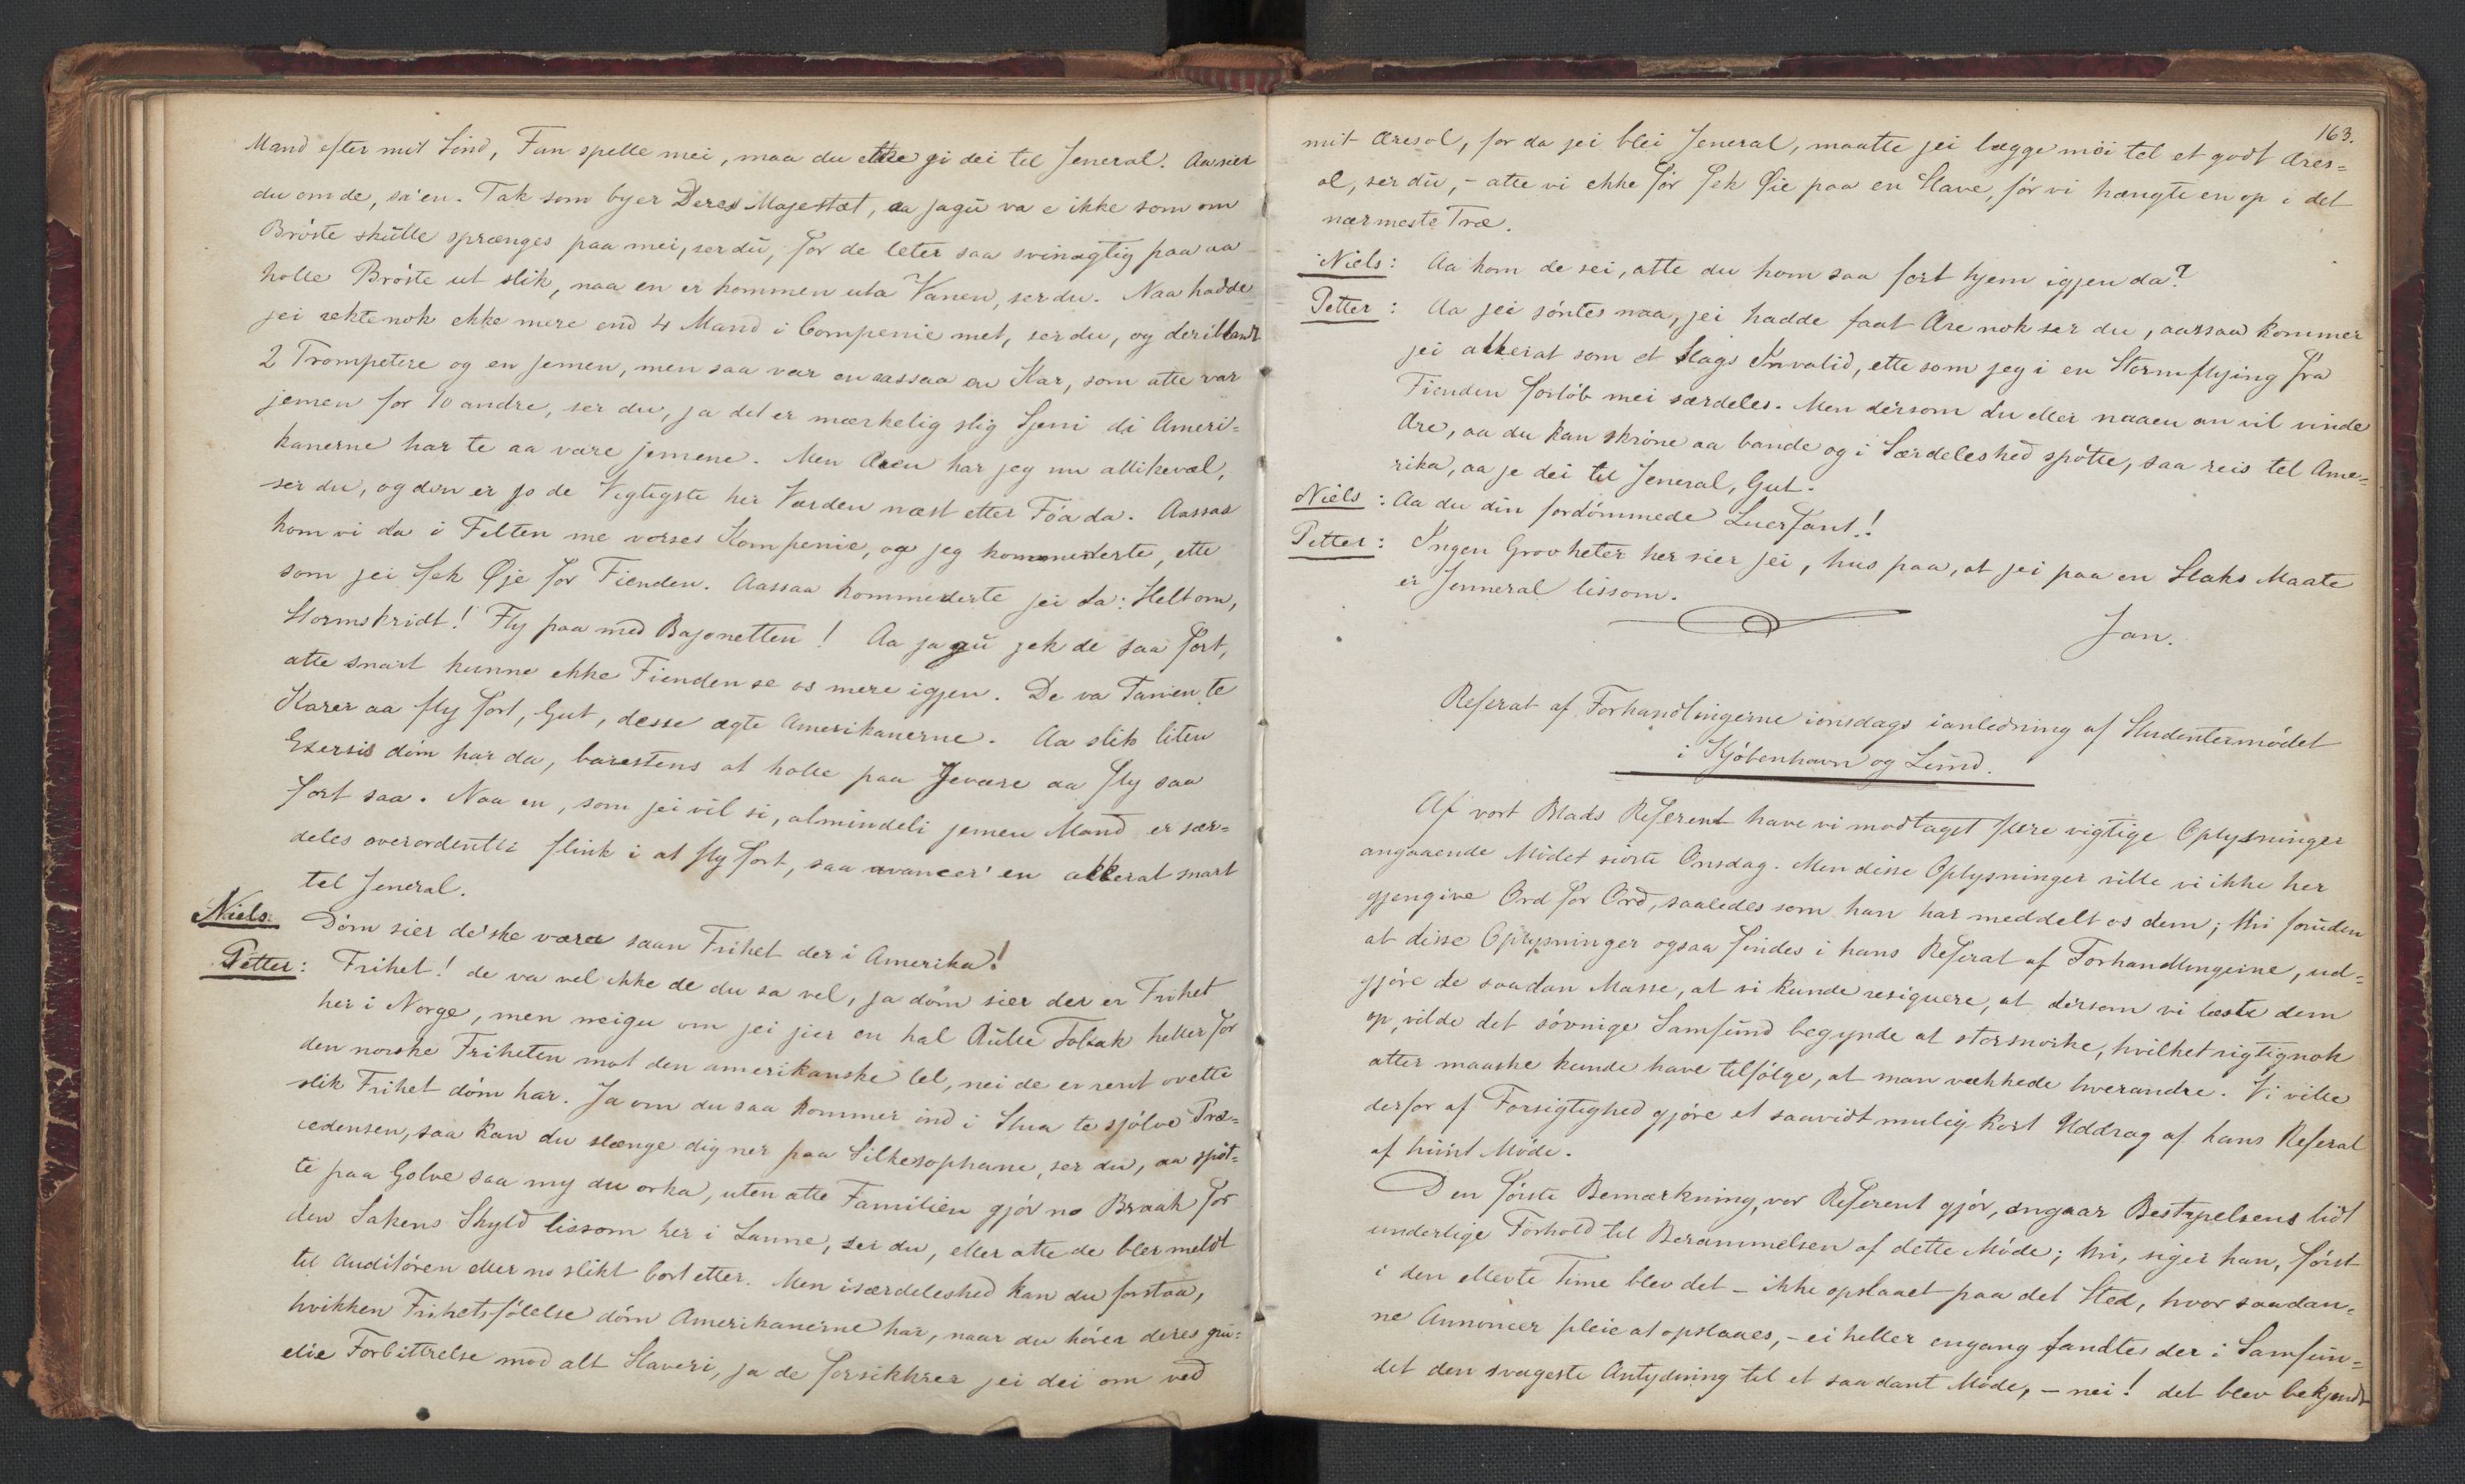 Mand efter mit Sind, Fan spelle mei, maa du ette gi dei tel Jeneral. Aa sier
du om de, sa'en. Tak som byer Deres Majestæt, aa jagu va e ikke som om
Brøste skulle sprænges paa mei, ser du, for de leter saa svinagtig paa aa
holle Brøste ut slik, naa en er kommen uta Vanen, ser du. Naa hadde
jei rektenok ekke mere end 4 Mand i Compenie met, ser du, og deriblandt
2 Trompetere og en jemen, men saa var en aassaa en Kar, som atte var
jemen for 10 andre, ser du, ja det er mærkelig slig Sjeni di Ameri-
kanerne har te aa være jemene. Men Æren har jeg nu allikevæl,
ser du, og den er jo de Vegtigste her Værden næst etter Föa da. Aassaa
kom vi da i Felten me vorses Kompenie, og jeg kommederte, ette
som jei fek Øje for Fienden. Aassaa kommederte jei da: Helt om,
Stormskridt! Fly paa med Bajonetten! Aa jagu jek de saa fort,
atte snart kunne ekke Fienden se os mere igjen. De va Fanen te
Karer aa fly fort, Gut, desse ægte Amerikanerne. Aa slik liten
Exersis döm har da, barestens at holle paa Jevære aa fly saa
fort saa. Naa en, som jei vil si, almindeli jemen Mand er sær-
deles overordentli flink i at fly fort, saa avancer' en akkerat snart
tel Jeneral.
Niels. Döm sier de'ske være saan Frihet der i Amerika!
Petter: Frihet! de va vel ikke de du sa vel, ja döm sier der er Frihet
her i Norge, men neigu om jei jier en hal Rulle Tobak heller for
den norske Friheten mot den amerikanske lel, nei de er rent ovette
slik Frihet döm har. Ja om du saa kommer ind i Stua te sjölve Præ-
cedensen, saa kan du slænge dig ner paa Silkesophane, ser du, aa spöt-
te paa Golve saa my du orka, uten atte Familien gjör no Braak for
den Sakens Skyld lissom her i Lanne, ser du, eller atte de bler meldt
til Auditören eller no slikt bort etter. Men isærdeleshed kan du forstaa,
hvikken Frihetsfölelse döm Amerikanerne har, naar du hörer deres gru-
elie Forbittrelse mod alt Slaveri, ja de forsikkrer jei dei om ved
163.
mit Æresol, for da jei blei Jeneral, maatte jei lægge mei tel et godt Æres-
ol, ser du, - atte vi ekke för fek Øie paa en Slave, för vi hængte en op i det
nærmeste Træ.
Niels: Aa kom de sei, atte du kom saa fort hjem igjen da?
Petter: Aa jei söntes naa, jei hadde faat Ære nok ser du, aassaa kommer
jei akkerat som et Slags Invalid, ette som jeg i en Stormflying fra
Fienden forlöb mei særdeles. Men dersom du eller naaen an vil vinde
Ære, aa du kan skröne aa bande og i Særdeleshed spötte, saa reis tel Ame-
rika, aa je dei tel Jeneral, Gut.
Niels: Aa du din fordömmede Luerfant!
Petter: Ingen Grovheter her sier jei, hus paa, at jei paa en Slaks Maate
er Jenneral lissom.
Jan.
Referat af Forhandlingerne ionsdags ianledning af Studentermödet
i Kjöbenhavn og Lund.
Af vort Blads Referent have vi modtaget flere vigtige Oplysninger
angaaende Mödet sidste Onsdag. Men disse Oplysninger ville vi ikke her
gjengive Ord for Ord, saaledes som han har meddelt os dem; thi foruden
at disse Oplysninger ogsaa findes i hans Referat af Forhandlingerne, ud-
gjöre de saadan Masse, at vi kunde resiquere, at dersom vi læste dem
op, vilde det sövnige Samfund begynde at storsnorke, hvilket rigtignok
atter maaske kunde have tilfölge, at man vækkede hverandre. Vi ville
derfor af Forsigtighed gjöre et saavidt mulig kort Uddrag af hans Referat
af hiint Möde.
Den förste Bemærkning, vor Referent gjör, angaar Bestyrelsens lidt
underlige Forhold til Berammelsen af dette Möde; thi, siger han, först
i den ellevte Time blev det - ikke opslaaet paa det Sted, hvor saadan-
ne Annoncer pleie at opslaaes, - ei heller engang fandtes der i Samfun-
det den svageste Antydning til et saadant Möde, - nei! det blev bekjendt